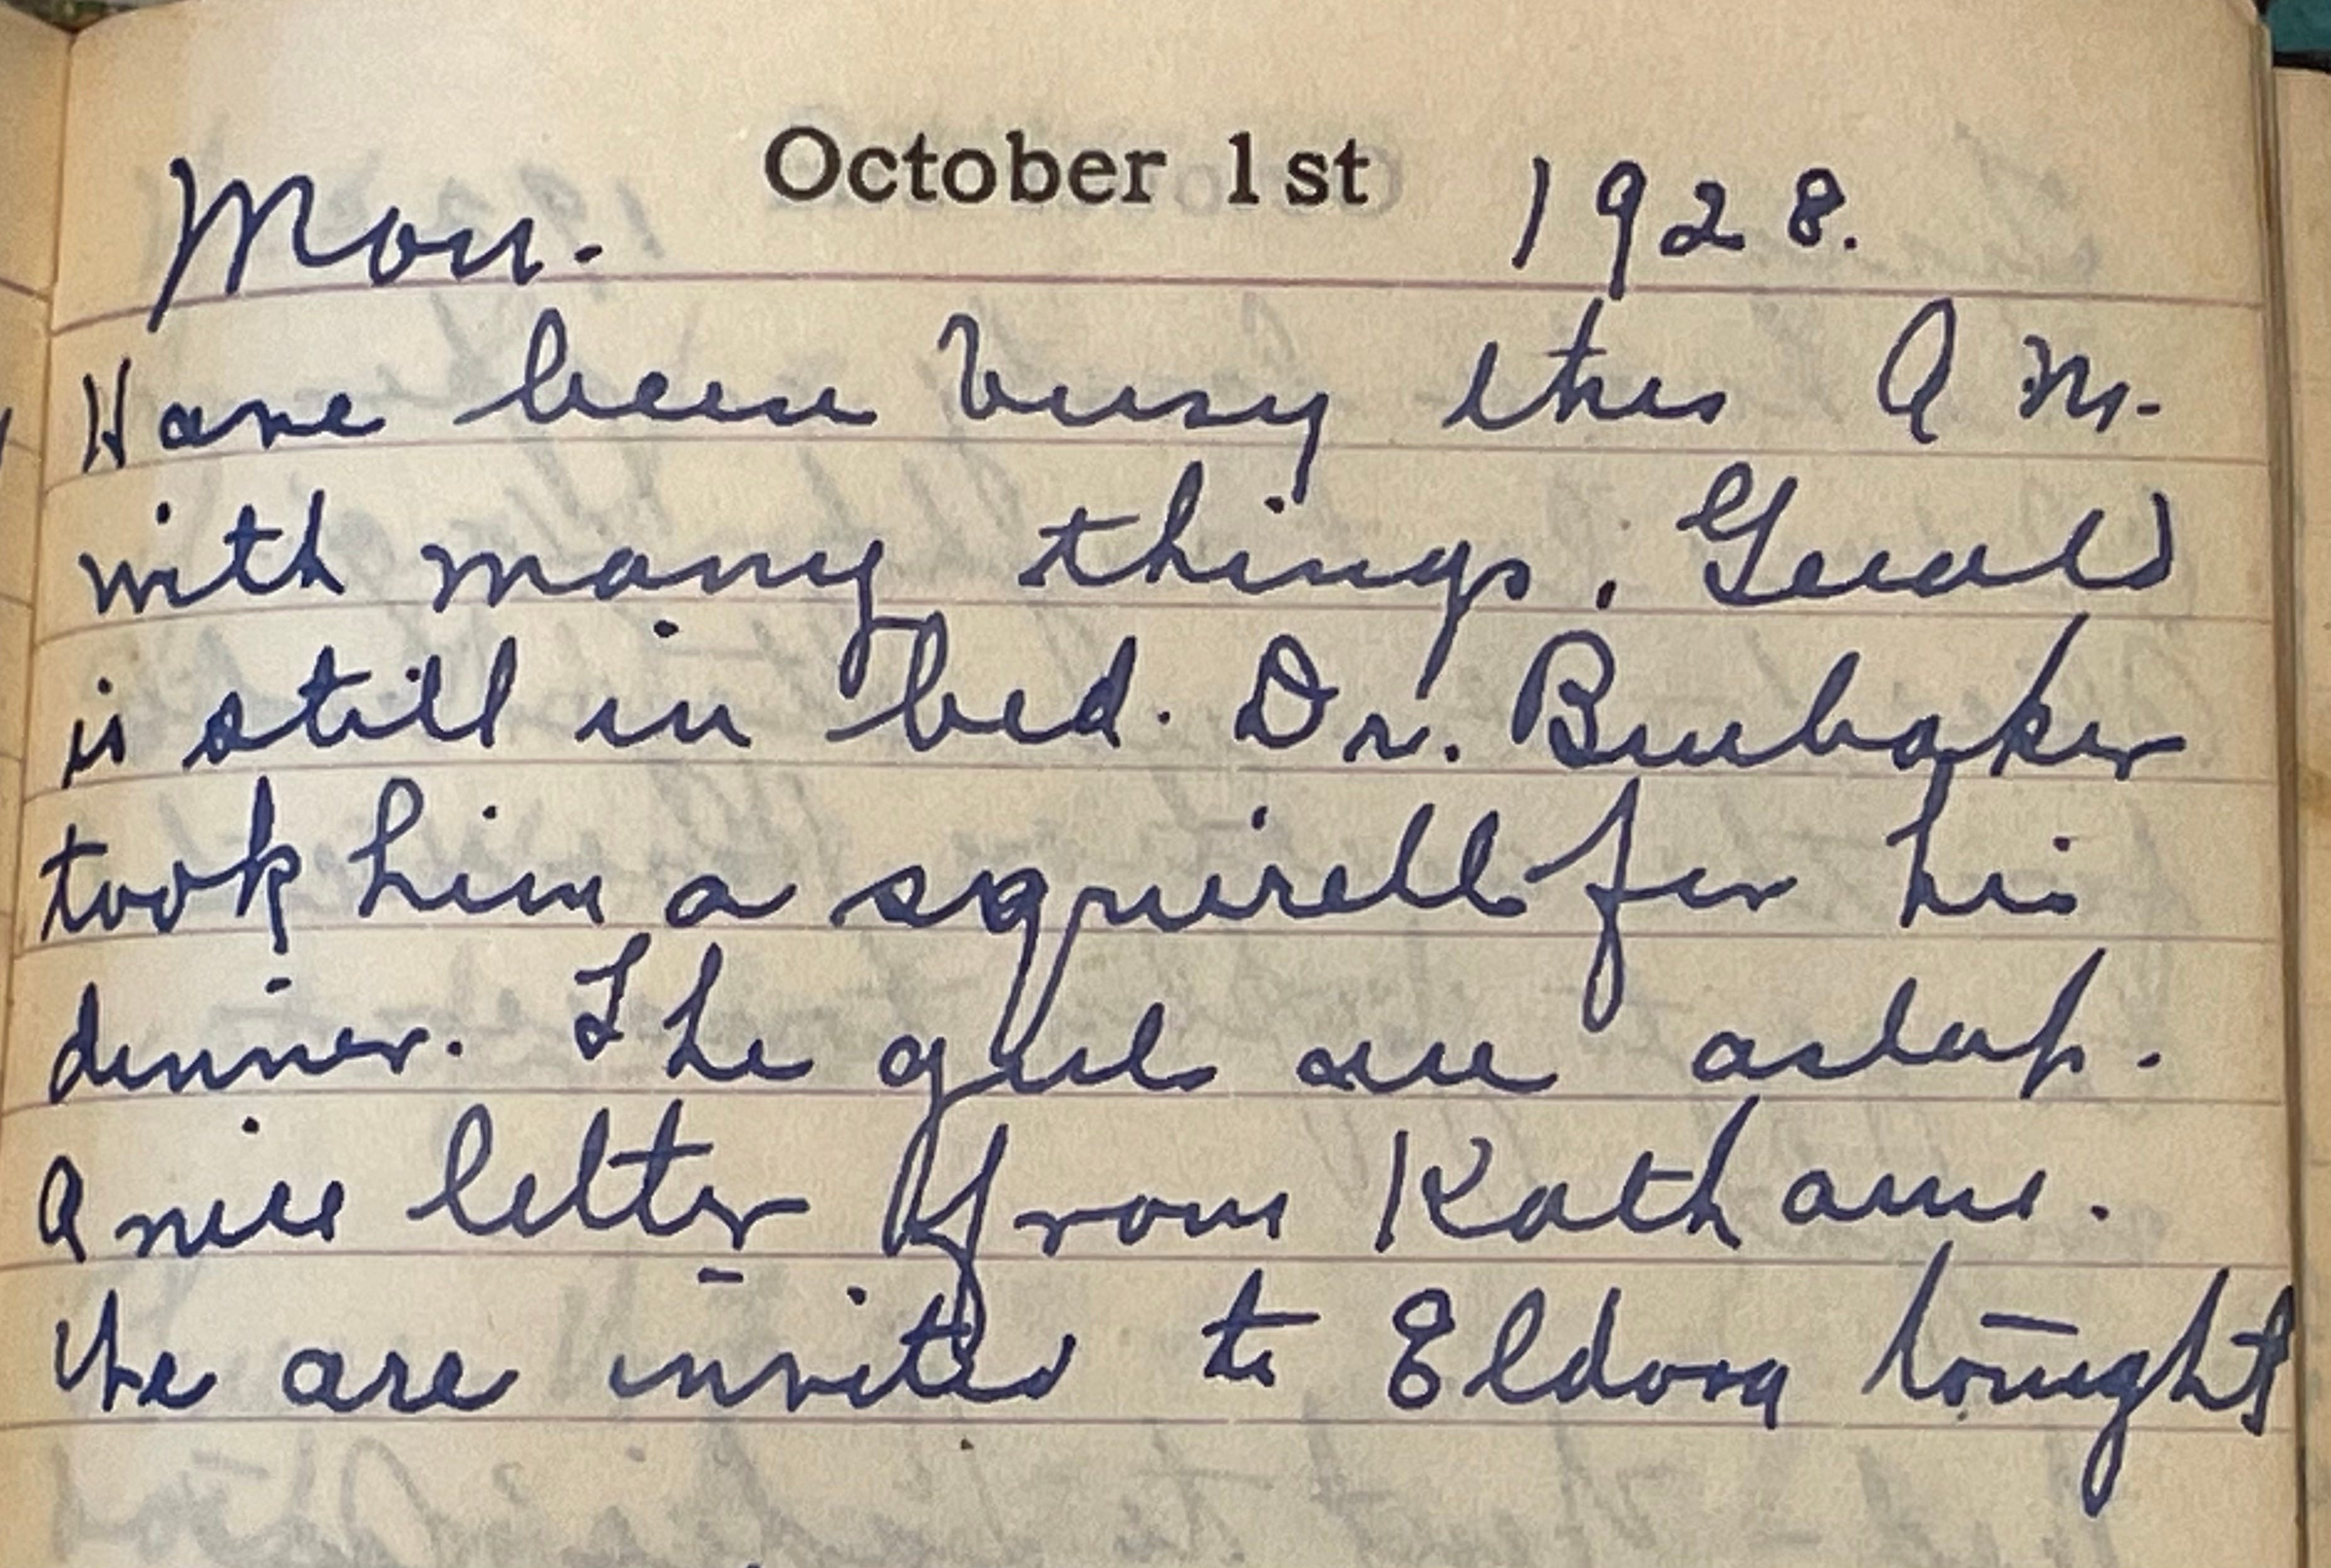 October 1st
Mon. 1928.
Have been busy this A M.
with many things. Gerald
is still in bed. Dr. Brubaker
took him a squirell for his
dinner. The girls are asleep.
A nice letter from
We are invited to Eldora tonight